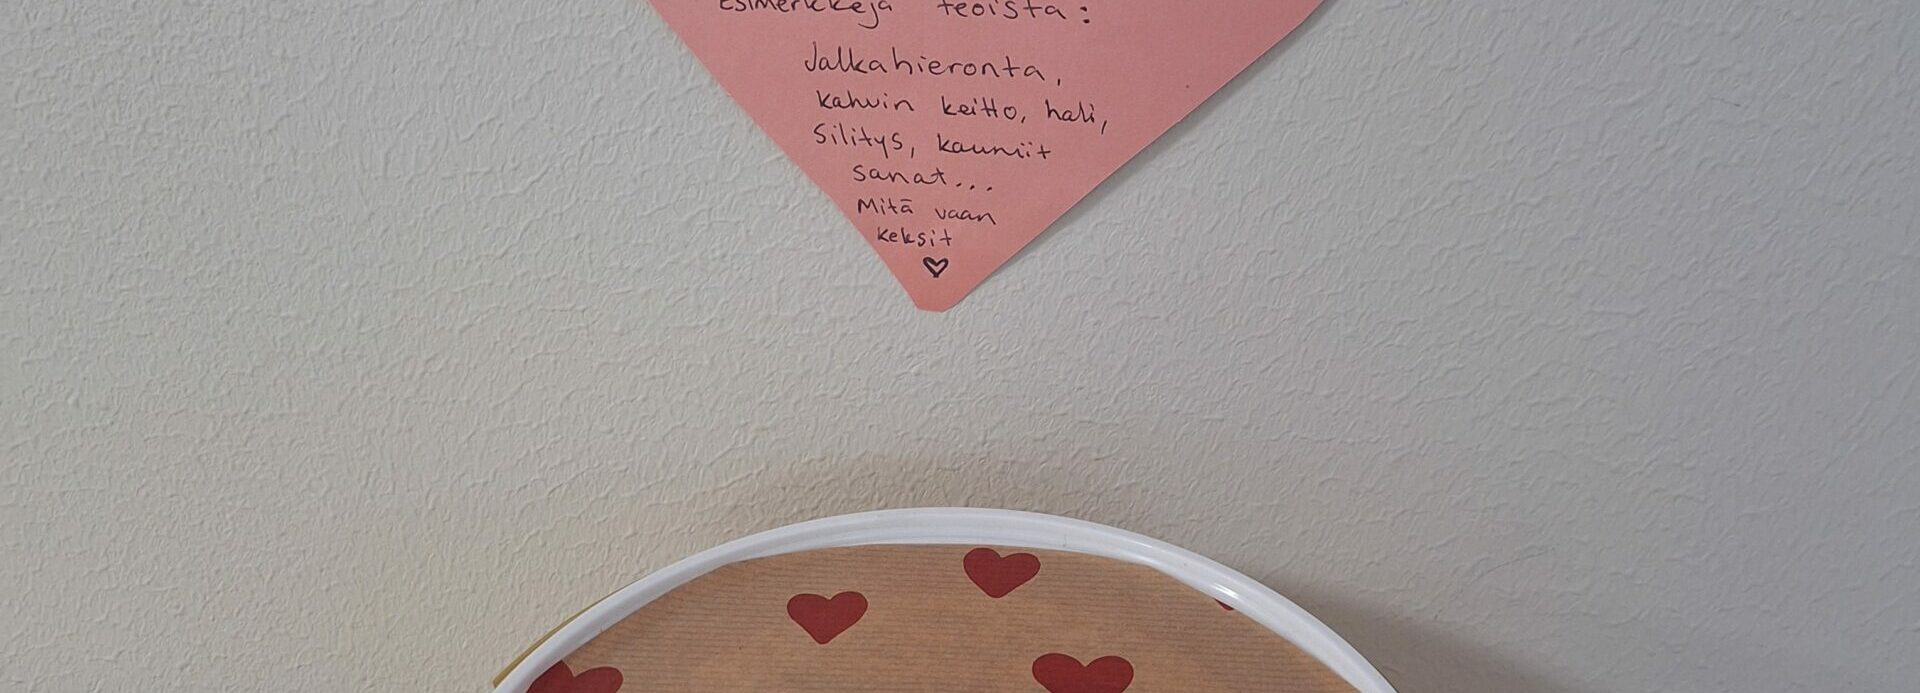 Esimerkkejä teoista:
Jalkahieronta,
kahvin keitto, hali,
Silitys, kauniit
sanat...
Mitä vaan
keksit